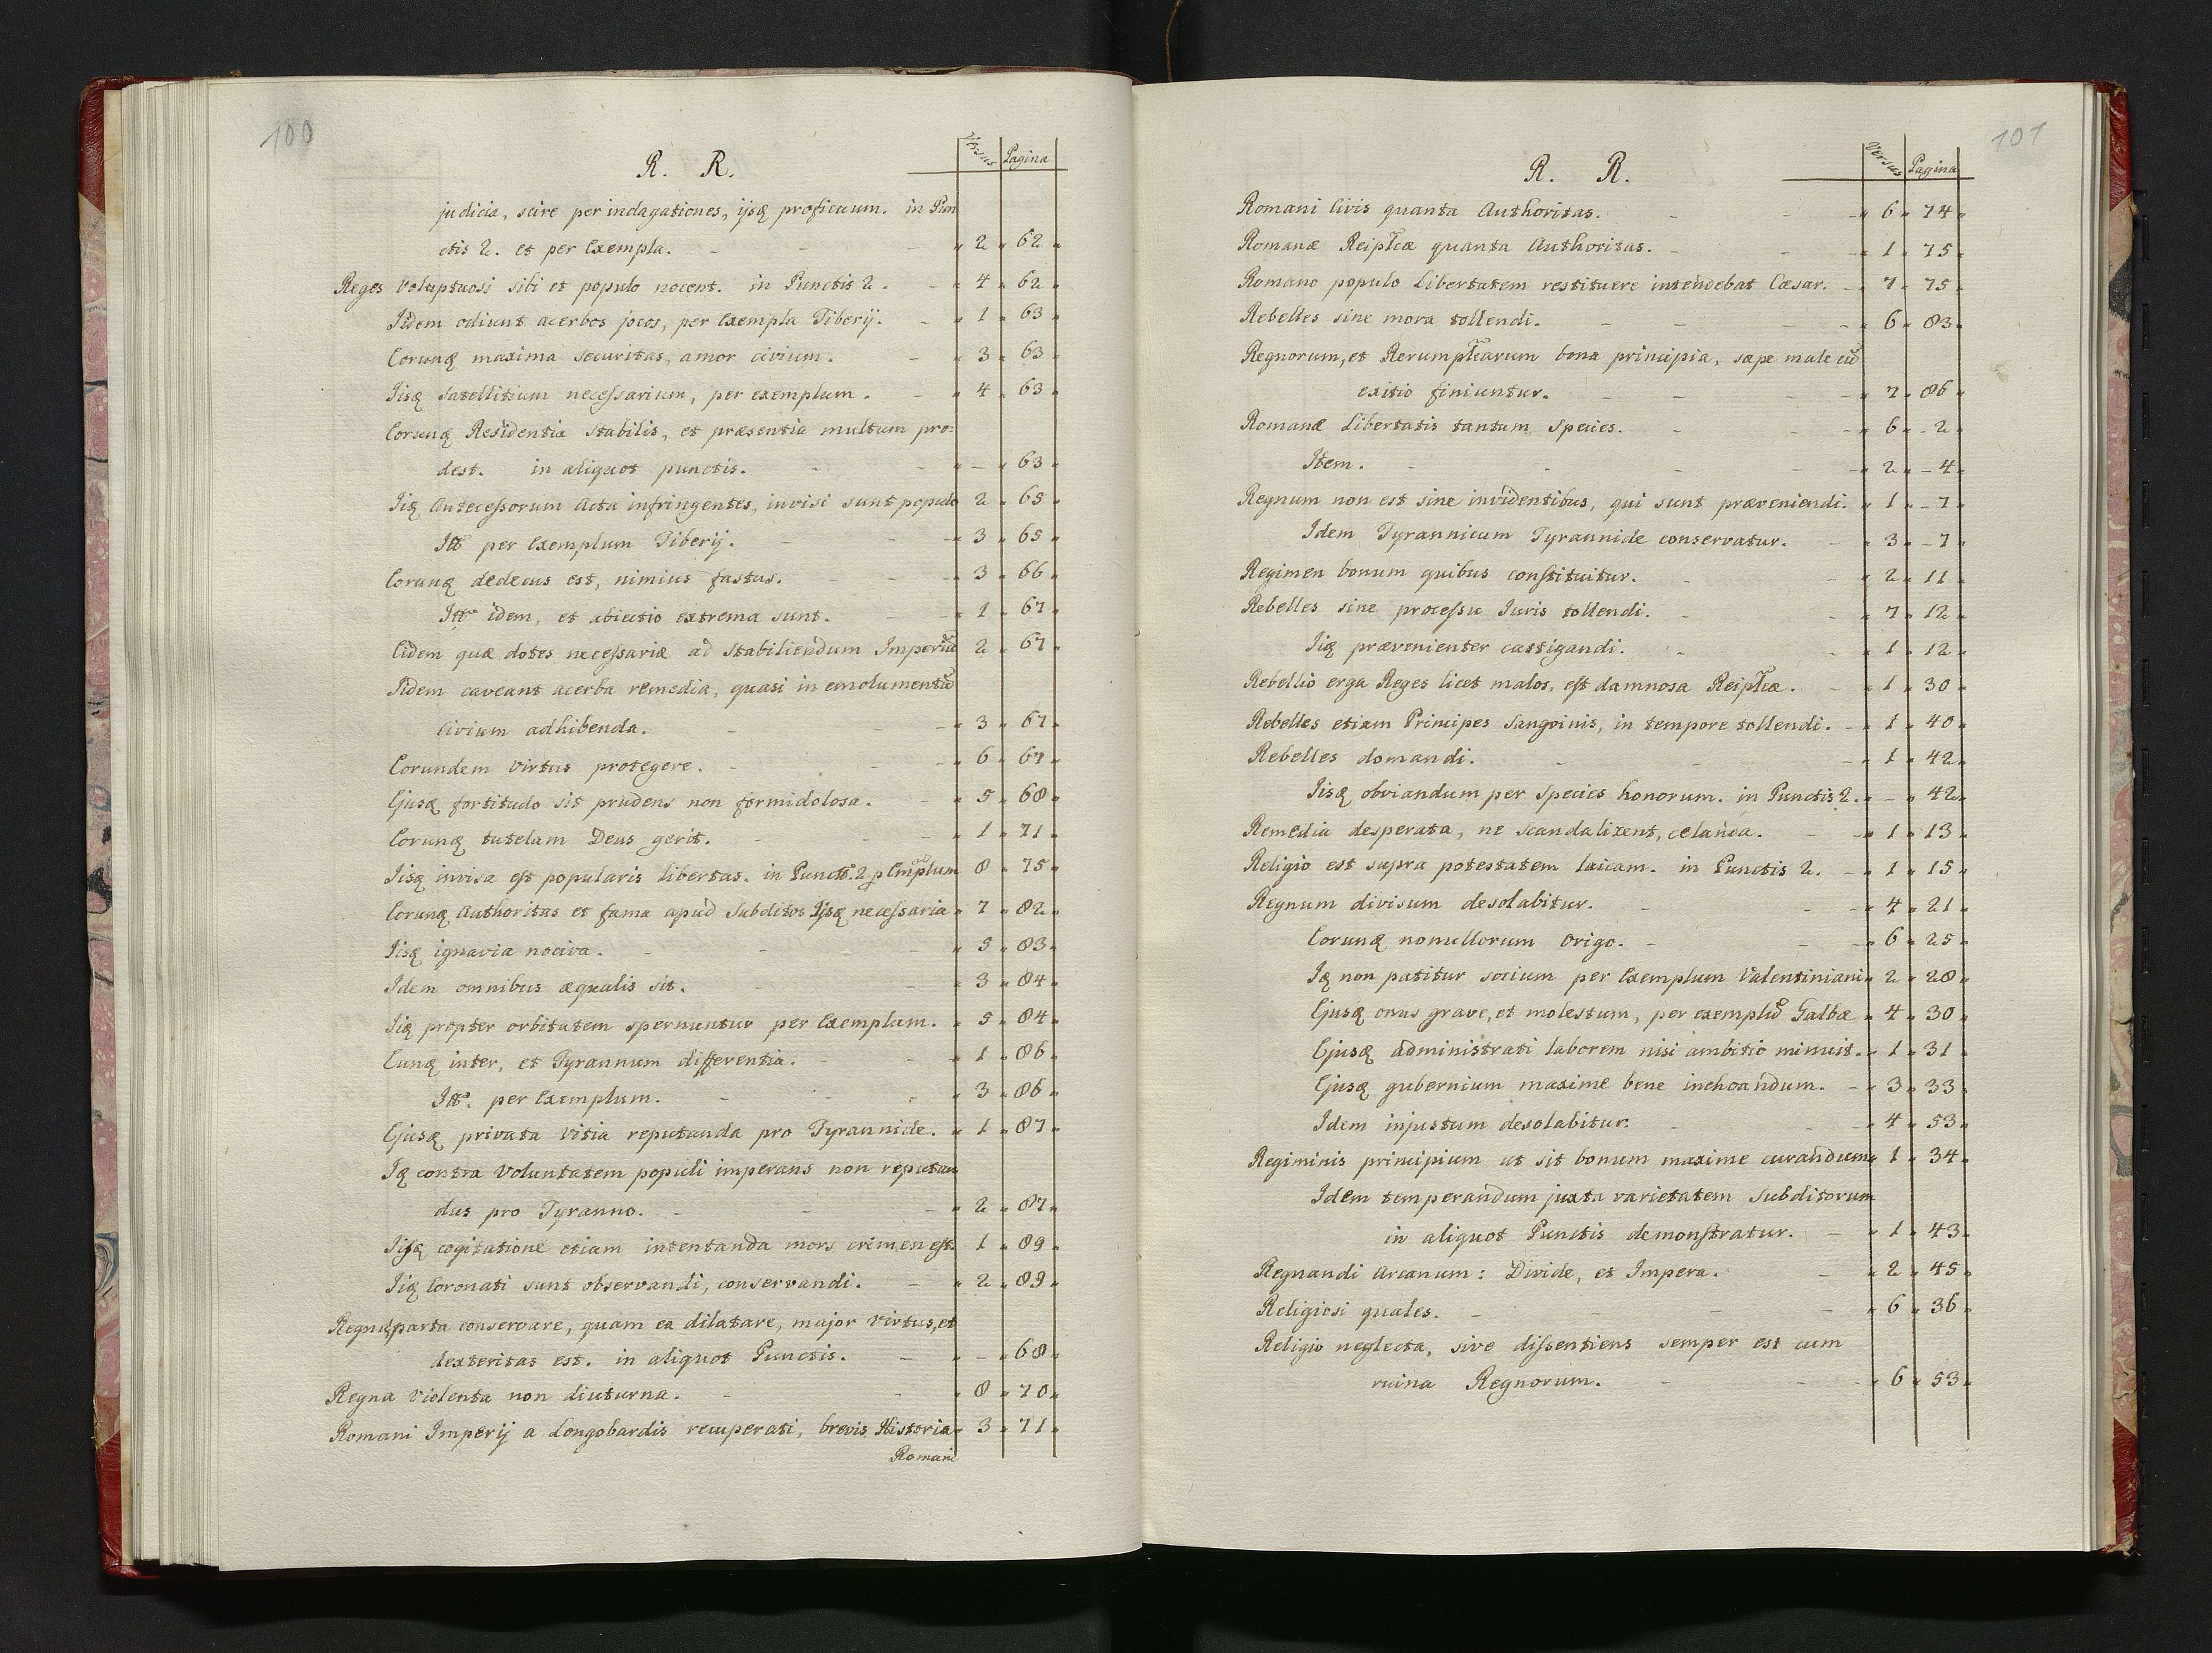 100
R. R.
Versus Pagina
judicia, scire per indagationes, ijsq proficuum. in Pun
ctis 2. et per Exempla. - 2 62
Reges Voluptuosi sibi et populo nocent. in Punctis 2. - 4 62
Iidem odiunt acerbos jocos, per Exempla Tiberij. - 1 63
Eorunq maxima securitas, amor civium. - 3 63
Iisq satellitium necessarium, per exemplum. - 4 63
Eorunq Residentia stabilis, et præsentia multum pro:
dest. in aliquot punctis. - - 63
Iiq Antecessorum Acta infringentes, invisi sunt populo 2 65
Itt per Exemplum Tiberij. - 3 65
Eorunq dedecus est, nimius fastus. - 3 66
Itt idem, et abiectio extrema sunt. - 1 67
Eidem quæ dotes necessariæ ad stabiliendum Imperiū 2 67
Iidem caveant acerba remedia, quasi in emolumentū
Civium adhibenda. - 3 67
Eorundem Virtus protegere. - 6 67
Ejusq fortitudo sit prudens non formidolosa. - 5 68
Eorunq tutelam Deus gerit. - 1 71
Iisq invisa est popularis libertas. in Punctis. 2 p Exmplum 8 75
Eorunq Authoritas et fama apud Subditos Iisq necessaria 7 82
Iisq ignavia nociva. - 5 83
Idem omnibus æqualis sit. - 3 84
Iiq propter orbitatem spernuntur per Exemplum. 5 84
Eunq inter, et Tyrannum differentia. - 1 86
Itt. per Exemplum. - 3 86
Ejusq privata Vitia reputanda pro Tyrannide. 1 87
Iq contra Voluntatem populi imperans non reputan
dus pro Tyranno. - 2 87
Iisq cogitatione etiam intentanda mors crimen est. 1 89
Iiq Coronati sunt observandi, conservandi. - 2 89
Regnaq parta conservare, quam ea dilatare, major Virtus, et
dexteritas est. in aliquot Punctis. - - 68
Regna Violenta non diuturna. - 8 70
Romani Imperij a Longobardis recuperati, brevis Historia 3 71
Romani
101
R. R.
Versus Pagina
Romani Civis quanta Authoritas. - 6 74
Romanæ Reiplcæ quanta Authoritas. - 1 75
Romano populo Libertatem restituere intendebat Cæsar. - 7 75
Rebelles sine mora tollendi. - 6 83
Regnorum, et Rerumplcarum bona principia, sæpe male cū
exitio finiuntur. - 7 86
Romanæ Libertatis tantum Species. - 6 - 2
Item. - 2 - 4
Regnum non est sine invidentibus, qui sunt præveniendi. 1 - 7
Idem Tyrannicum Tyrannide conservatur. - 3 - 7
Regimen bonum quibus constituitur. - 2 11
Rebelles sine processu Iuris tollendi. - 7 12
Iiq prævenienter castigandi. - 1 12
Rebellio erga Reges licet malos, est damnosa Reiplcæ. - 1 30
Rebelles etiam Principes Sangvinis, in tempore tollendi. - 1 40
Rebelles domandi. - 1 42
Iisq obviandum per Species honorum. in Punctis 2. - 42
Remedia desperata, ne scandalizent, celanda. - 1 13
Religio est supra potestatem laicam. in Punctis 2. - 1 15
Regnum divisum desolabitur. - 4 21
Eorunq nonnullorum Origo. - 6 25
Iq non patitur socium per Exemplum Valentiniani 2 28
Ejusq onus grave, et molestum, per exemplū Galbæ 4 30
Ejusq administrati laborem nisi ambitio minuit. 1 31
Ejusq gubernium maxime bene inchoandum. - 3 33
Idem injustum desolabitur. - 4 53
Regiminis principium ut sit bonum maxime curandum 1 34
Idem temperandum juxta varietatem Subditorum
in aliquot Punctis demonstratur. - 1 43
Regnandi Arcanum: Divide, et Impera. - 2 45
Religiosi quales. - 6 36
Religio neglecta, sive dissentiens semper est cum
ruina Regnorum. - 6 53